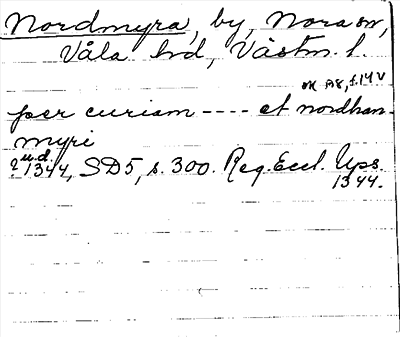 Nordmyra, by, Nora sn,
Våla hd, Västm. l.
M A8, f. 14 v
per curiam ---- et nordhan-
myri
u.d.
? 1344, SD5, s. 300. Reg. Eccl. Ups.
1344.